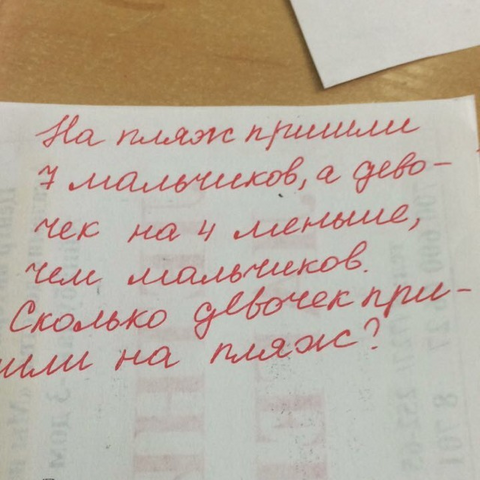 На пляж пришли
7 мальчиков, а дево-
чек на 4 меньше,
чем мальчиков.
Сколько девочек при-
шли на пляж?